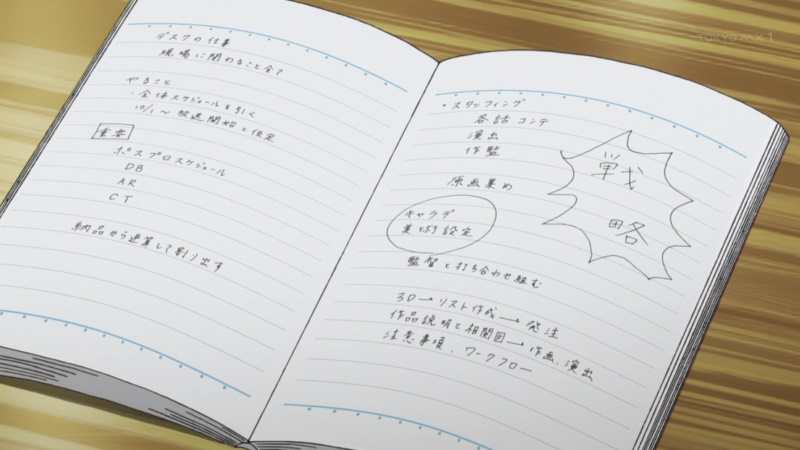 デスクの仕事
現場に関わること全て
やること
・全体スケジュールを引く
10/1〜放送開始と仮定
重要
ポスプロスケジュール
DB
AR
CT
納品から逆算して割り出す
・スタッフィング
各話コンテ
演出
作監
原画集め
キャラデ
美術設定
監督と打ち合わせ組む
3D→リスト作成→発注
作品説明と相関図→作画、演出
注意事項、ワークフロー
戦
略
TOKYO MX 1